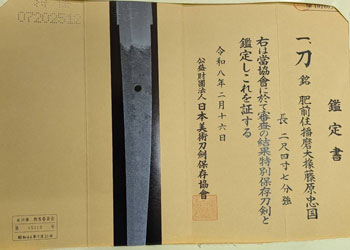 鑑定書
一、刀 銘 肥前住播磨大掾藤原忠国
長 二尺四寸七分強
右は當協會に於て審査の結果特別保存刀剣と
鑑定しこれを証する
令和八年二月十六日
公益財団法人 日本美術刀剣保存協會
07202512